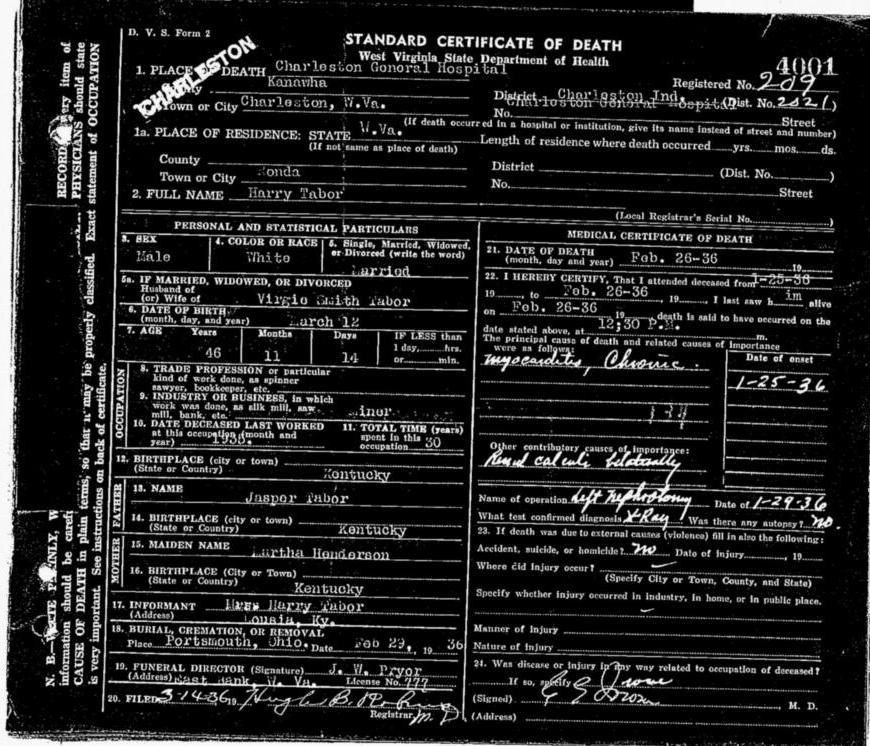 D. V. S. Form 2
STANDARD CERTIFICATE OF DEATH
West Virginia State Department of Health
4001
CHARLESTON
1. PLACE OF DEATH Charleston Gonoral Hospital
Registered No. 209
Kanawha
District Charleston Ind. (Dist. No. 2021)
Town or City Charleston, W.Va.
No. Charleston General Hospital Street
(If death occurred in a hospital or institution, give its name instead of street and number)
1a. PLACE OF RESIDENCE: STATE W.Va.
Length of residence where death occurred yrs. mos. ds.
(If not same as place of death)
County
District (Dist. No. )
Town or City Ronda
No. Street
2. FULL NAME Harry Tabor
(Local Registrar's Serial No. )
PERSONAL AND STATISTICAL PARTICULARS
3. SEX
Male
4. COLOR OR RACE
White
5. Single, Married, Widowed, or Divorced (write the word)
Married
5a. IF MARRIED, WIDOWED, OR DIVORCED
Husband of
(or) Wife of Virgie Smith Tabor
6. DATE OF BIRTH
(month, day, and year) March 12
7. AGE Years Months Days IF LESS than
1 day, hrs.
or min.
46 11 14
OCCUPATION
8. TRADE PROFESSION or particular
kind of work done, as spinner
sawyer, bookkeeper, etc.
9. INDUSTRY OR BUSINESS, in which
work was done, as silk mill, saw
mill, bank, etc. Miner
10. DATE DECEASED LAST WORKED
at this occupation (month and
year)
11. TOTAL TIME (years)
spent in this
occupation 30
12. BIRTHPLACE (city or town)
(State or Country) Kentucky
FATHER
13. NAME
Jaspor Tabor
14. BIRTHPLACE (city or town)
(State or Country) Kentucky
MOTHER
15. MAIDEN NAME
Martha Henderson
16. BIRTHPLACE (City or Town)
(State or Country)
Kentucky
17. INFORMANT Mrs. Harry Tabor
(Address) Lousia, Ky.
18. BURIAL, CREMATION, OR REMOVAL
Place Portsmouth, Ohio. Date Feb 29, 1936
19. FUNERAL DIRECTOR (Signature) J. W. Pryor
(Address) East Bank, W. Va. License No. 777
20. FILED 3-14-36 19 Hugh B.
Registrar M. D
MEDICAL CERTIFICATE OF DEATH
21. DATE OF DEATH
(month, day and year) Feb. 26-36 19
22. I HEREBY CERTIFY, That I attended deceased from 1-25-36
19 , to Feb. 26-36 , 19 , I last saw him alive
on Feb. 26-36 19 death is said to have occurred on the
date stated above, at 12;30 P.M. m.
The principal cause of death and related causes of importance
were as follows:
Date of onset
Myocarditis, Chronic.
1-25-36
134
Other contributory causes of importance:
Renal calculi bilaterally
Name of operation Left Nephrotomy Date of 1-29-36
What test confirmed diagnosis X-Ray Was there any autopsy? no.
23. If death was due to external causes (violence) fill in also the following:
Accident, suicide, or homicide? no Date of injury , 19
Where did injury occur?
(Specify City or Town, County, and State)
Specify whether injury occurred in industry, in home, or in public place.
Manner of injury
Nature of injury
24. Was disease or injury in any way related to occupation of deceased?
If so, specify
(Signed) M. D.
(Address)
information should be
CAUSE OF DEATH in plain terms, so that it may be properly classified. Exact statement of OCCUPATION
is very important. See instructions on back of certificate.
PHYSICIANS should state